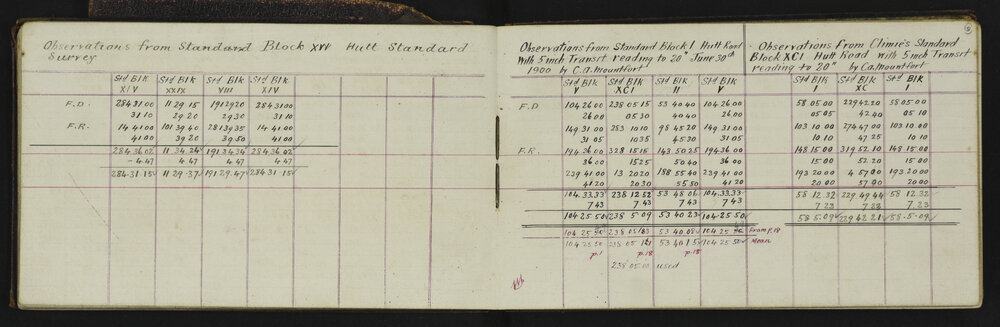 Observations from Standard Block XVI Hutt Standard
Survey
Std Blk Std Blk Std Blk Std Blk
XIV XXIX VIII XIV
F.D. 284 31 00 11 29 15 191 29 20 284 31 00
31 10 29 20 29 30 31 10
F.R. 14 41 00 101 39 40 281 39 35 14 41 00
41 00 39 20 39 50 41 00
284.36.02 11 34.24 191 34 34 284.36.02
- 4.47 4.47 4.47 4.47
284.31.15 11 29.37 191 29.47 284 31 15
Observations from Standard Block I Hutt Road
With 5 inch Transit reading to 20" June 30th
1900 by C.A. Mountfort
Std Blk Std Blk Std Blk Std Blk
V XCI II V
F.D 104 26 00 238 05 15 53 40 40 104 26 00
26 00 05 30 40 40 26 00
149 31 00 283 10 10 98 45 20 149 31 00
31 05 10 35 45 30 31 05
F.R. 194 36 00 328 15 15 143 50 25 194 36 00
36 00 15 25 50 40 36 00
239 41 00 13 20 20 188 55 40 239 41 00
41 20 20 30 55 50 41 20
104.33.33 238 12 52 53 48 06 104.33.33
7 43 7 43 7 43 7 43
104 25 50 238 5 09 53 40 23 104 25 50
104 25 50 238 05 53 40 08 104 25 From p.18
104 25 50 238 05 53 40 15 104 25 50 Mean
p.1 p.18 p.18
238 05 10 used
Observations from Climie's Standard
Block XCI Hutt Road with 5 inch Transit
reading to 20" by C.A. Mountfort
Std Blk Std Blk Std Blk
I XC I
58 05 00 229 42 20 58 05 00
05 05 42 40 05 10
103 10 00 274 47 00 103 10 00
10 10 47 25 10 10
148 15 00 319 52 10 148 15 00
15 00 52 20 15 00
193 20 00 4 57 00 193 20 00
20 00 57 20 00
58 12.32 229 49 44 58 12.32
7 23 7 23 7.23
58 5.09 229 42 21 58.5.09